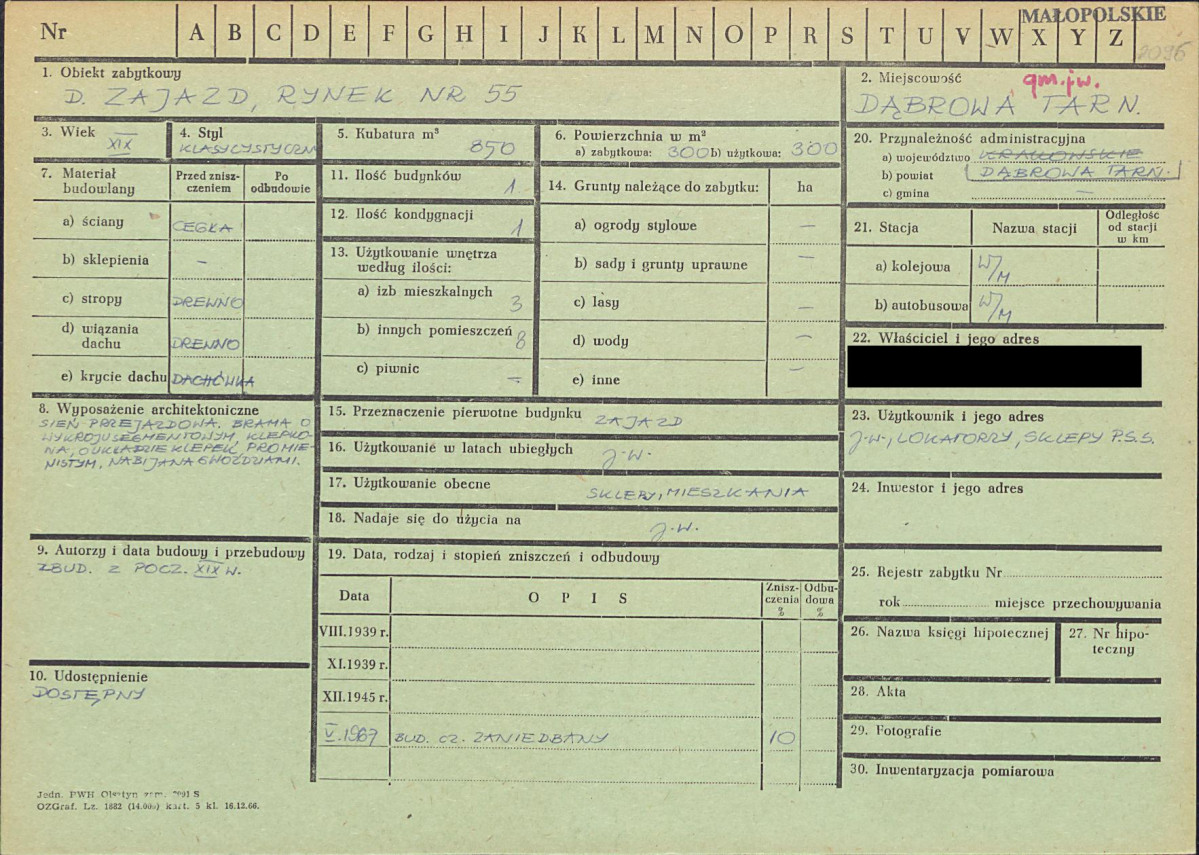 MAŁOPOLSKIE
Nr A B C D E F G H I J K L M N O P R S T U V W X Y Z
2096
1. Obiekt zabytkowy
D. ZAJAZD, RYNEK NR 55
2. Miejscowość
gm. jw.
DĄBROWA TARN.
3. Wiek
XIX
4. Styl
KLASYCYSTYCZN
5. Kubatura m³
850
6. Powierzchnia w m²
a) zabytkowa: 300 b) użytkowa: 300
7. Materiał budowlany
Przed zniszczeniem
Po odbudowie
a) ściany CEGŁA
b) sklepienia –
c) stropy DREWNO
d) wiązania dachu DREWNO
e) krycie dachu DACHÓWKA
8. Wyposażenie architektoniczne
SIEŃ PRZEJAZDOWA. BRAMA O
WYKROJU SEGMENTOWYM, KLEPKO-
NA, O UKŁADZIE KLEPEK, PROMIE-
NISTYM, NABIJANA GWOŹDZIAMI.
9. Autorzy i data budowy i przebudowy
ZBUD. Z POCZ. XIX W.
10. Udostępnienie
DOSTĘPNY
11. Ilość budynków
1
12. Ilość kondygnacji
1
13. Użytkowanie wnętrza według ilości:
a) izb mieszkalnych 3
b) innych pomieszczeń 8
c) piwnic –
14. Grunty należące do zabytku: ha
a) ogrody stylowe –
b) sady i grunty uprawne –
c) lasy –
d) wody –
e) inne –
15. Przeznaczenie pierwotne budynku
ZAJAZD
16. Użytkowanie w latach ubiegłych
J.W.
17. Użytkowanie obecne
SKLEPY, MIESZKANIA
18. Nadaje się do użycia na
J.W.
19. Data, rodzaj i stopień zniszczeń i odbudowy
Data OPIS Zniszczenia % Odbudowa %
VIII.1939 r.
XI.1939 r.
XII.1945 r.
V.1967 BUD. CZ. ZANIEDBANY 10
20. Przynależność administracyjna
a) województwo KRAKOWSKIE
b) powiat DĄBROWA TARN.
c) gmina –
21. Stacja Nazwa stacji Odległość od stacji w km
a) kolejowa W/M
b) autobusowa W/M
22. Właściciel i jego adres
23. Użytkownik i jego adres
J.W., LOKATORZY, SKLEPY P.S.S.
24. Inwestor i jego adres
25. Rejestr zabytku Nr
rok miejsce przechowywania
26. Nazwa księgi hipotecznej
27. Nr hipoteczny
28. Akta
29. Fotografie
30. Inwentaryzacja pomiarowa
Jedn. PWH Olsztyn zam. S
OZGraf. Lz. 1682 (14.000) kart. 5 kl. 16.12.66.